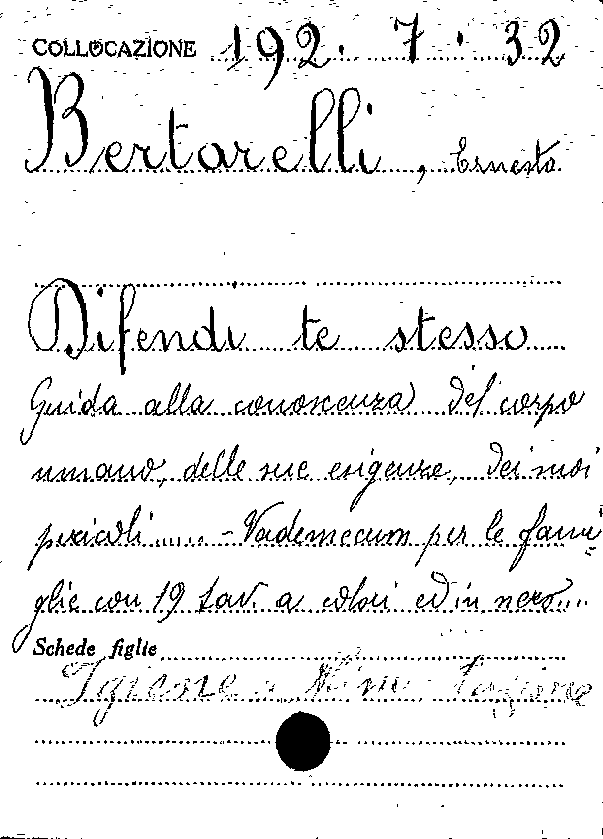 COLLOCAZIONE 192. 7. 32
Bertarelli, Ernesto
Difendi te stesso
Guida alla conoscenza del corpo
umano, delle sue esigenze, dei suoi
pericoli..... - Vademecum per le fami
glie con 19 tav. a colori ed in nero...
Schede figlie
Igiene